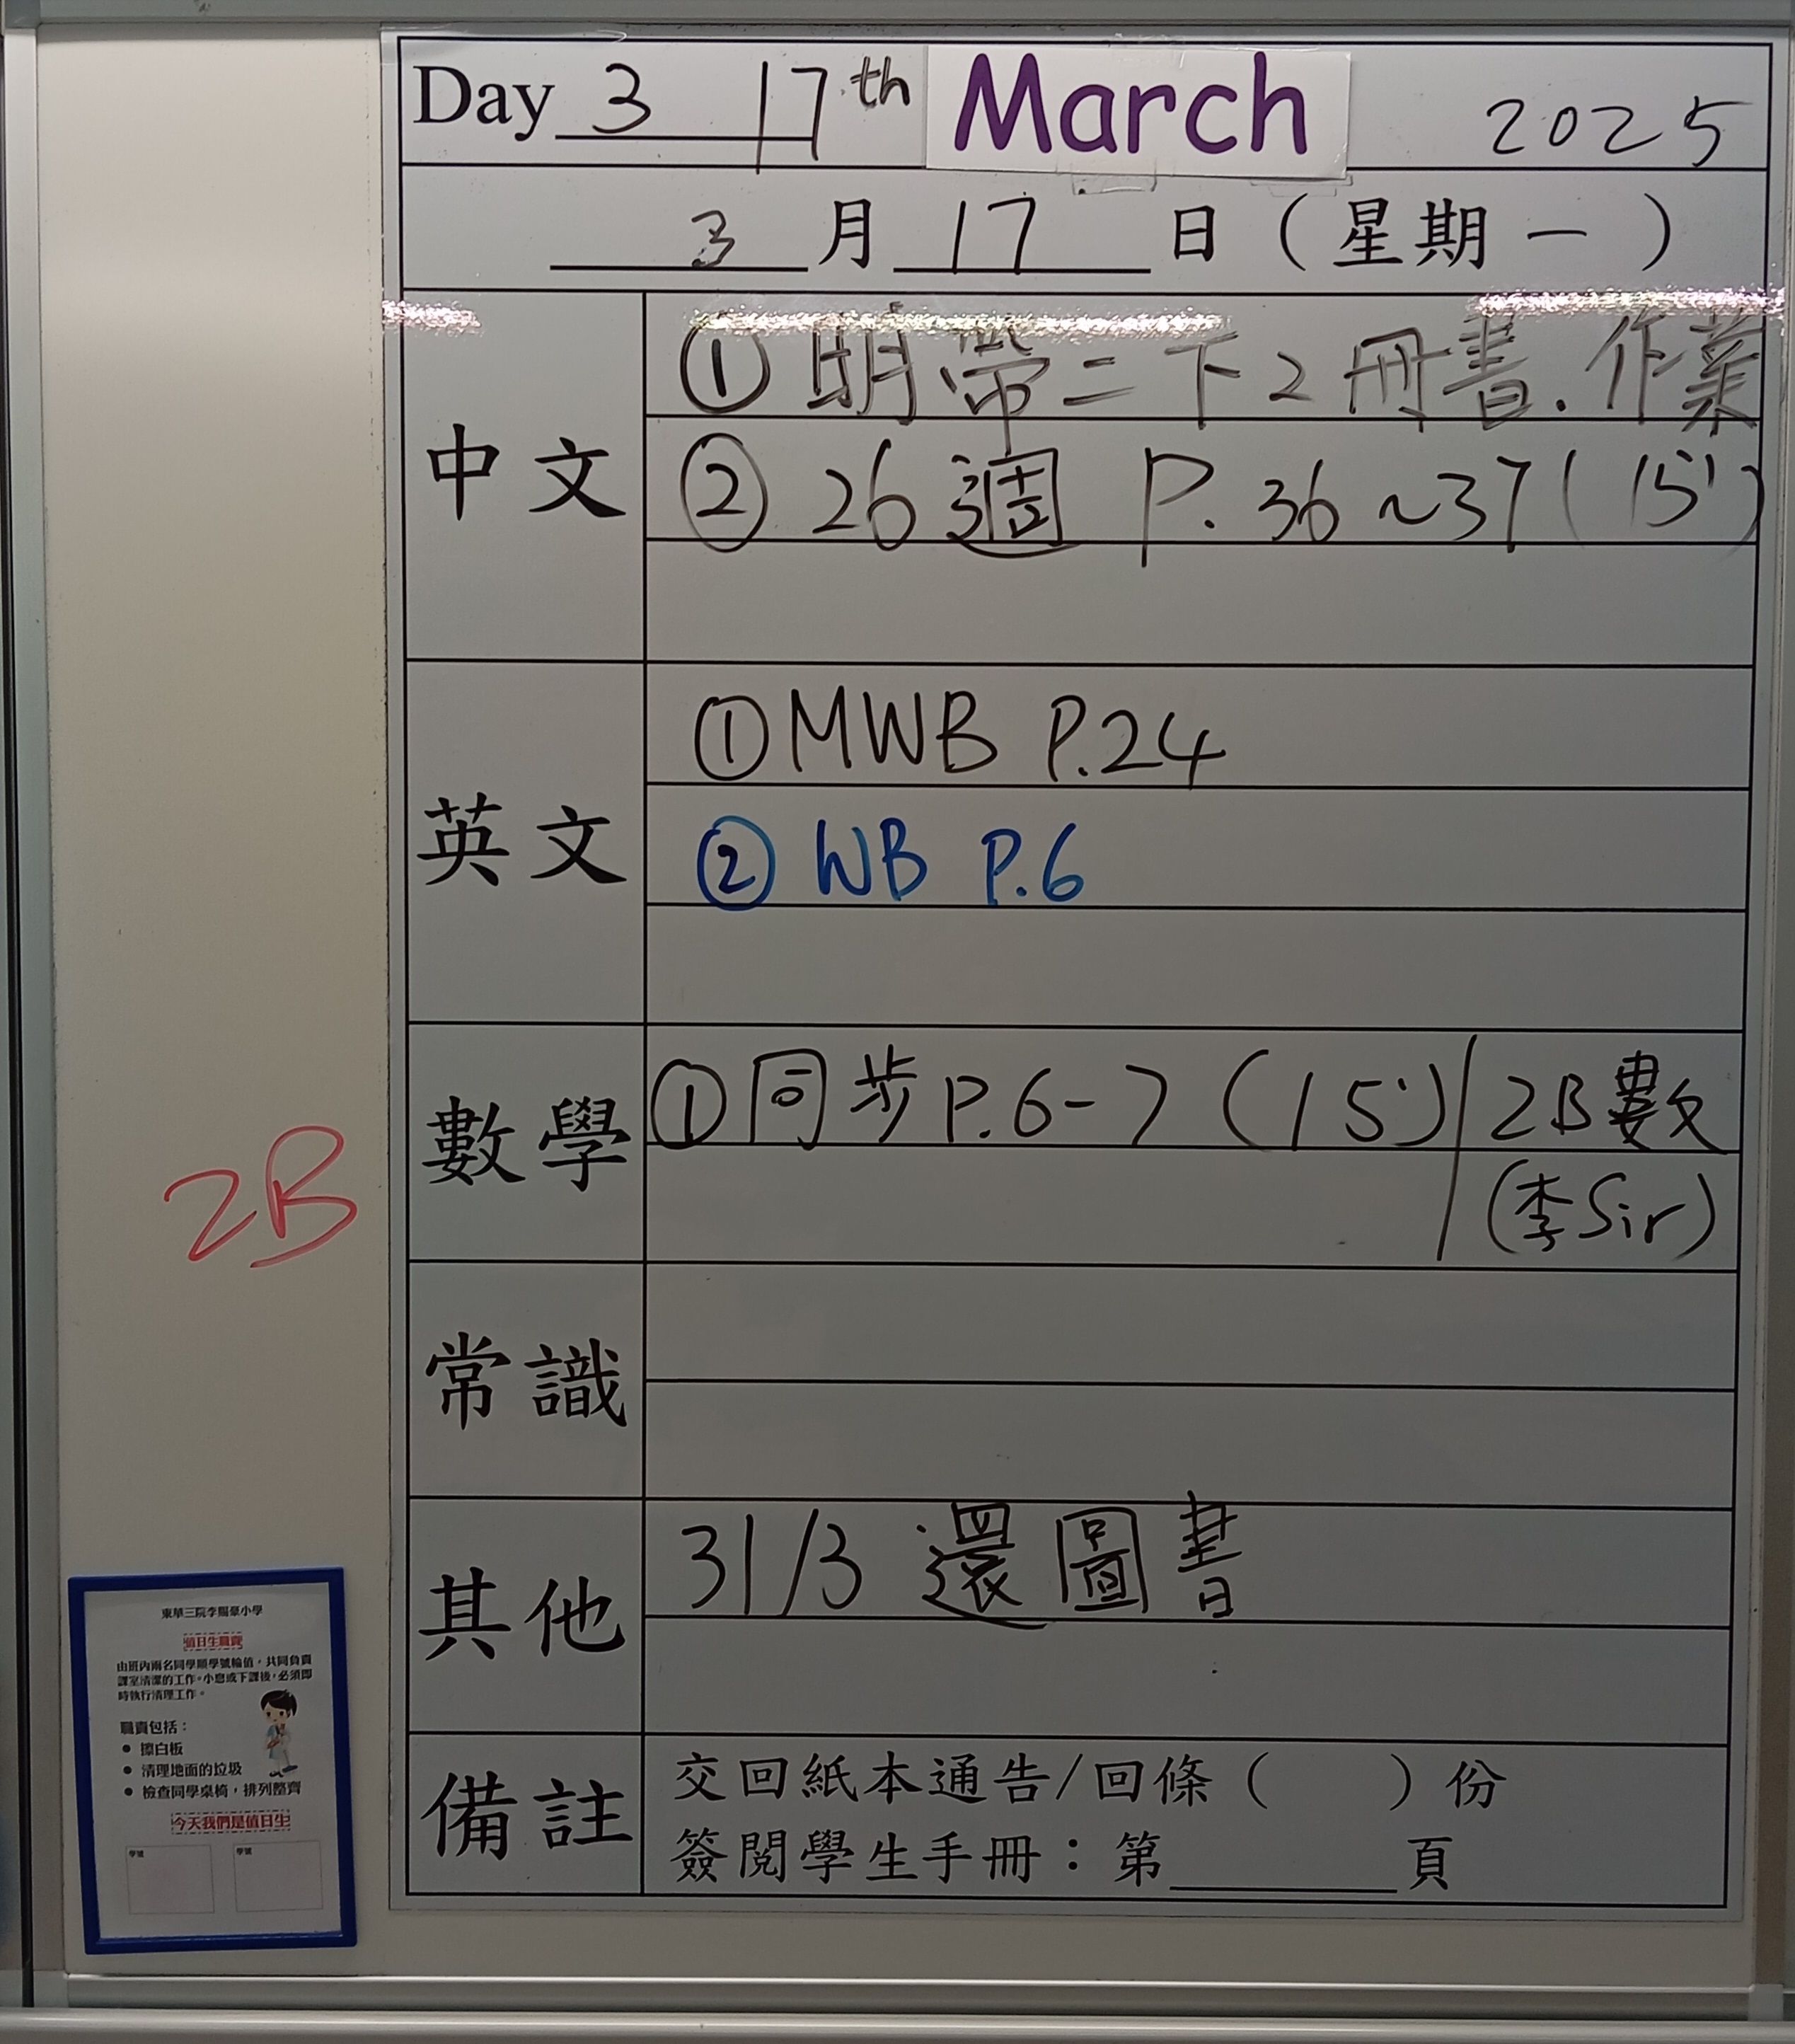 Day 3 17th March 2025
3 月 17 日 ( 星期一 )
中文
① 明帶二下2冊書.作業
② 26週 P. 36~37 ( 15' )
英文
① MWB P.24
② WB P.6
數學
① 同步 P.6-7 ( 15' ) / 2B數
(李Sir)
2B
常識
其他
31/3 還圖書
備註
交回紙本通告/回條 ( ) 份
簽閱學生手冊：第 頁
東華三院李賜豪小學
值日生職責
由班內兩名同學順學號輪值，共同負責
課室清潔的工作。小息或下課後，必須即
時執行清理工作。
職責包括：
● 擦白板
● 清理地面的垃圾
● 檢查同學桌椅，排列整齊
今天我們是值日生
學號
學號